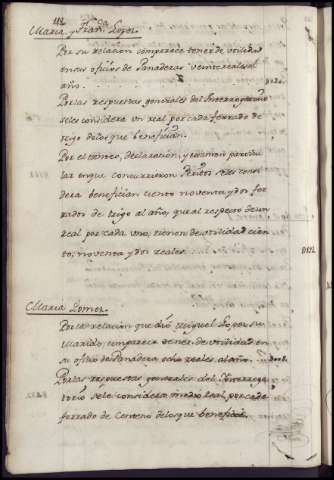 112
Maria, y Fran.ca Lopez.
Por su relacion comparece tener de utilidad
en sus oficios de Panaderas veinte reales al
año. D020.
Por las respuestas generales del Interrogatorio
se les considera un real por cada ferrado de
trigo de los que benefician.
Por el tanteo, declaracion, y examen particu
lar en que concurrieron Peritos se les consi
dera benefician ciento noventa y dos fer
rados de trigo al año, que al respecto de un
real por cada uno, tienen de utilidad cien
to, noventa y dos reales. D192.
Maria Gomez.
Por la relacion que dió Miguel Lopez su
marido, comparece tener de utilidad en
su oficio de Panadera ocho reales al año. D008.
Por las respuestas generales del Interroga
torio se le considera medio real por cada
ferrado de Centeno de los que beneficia.